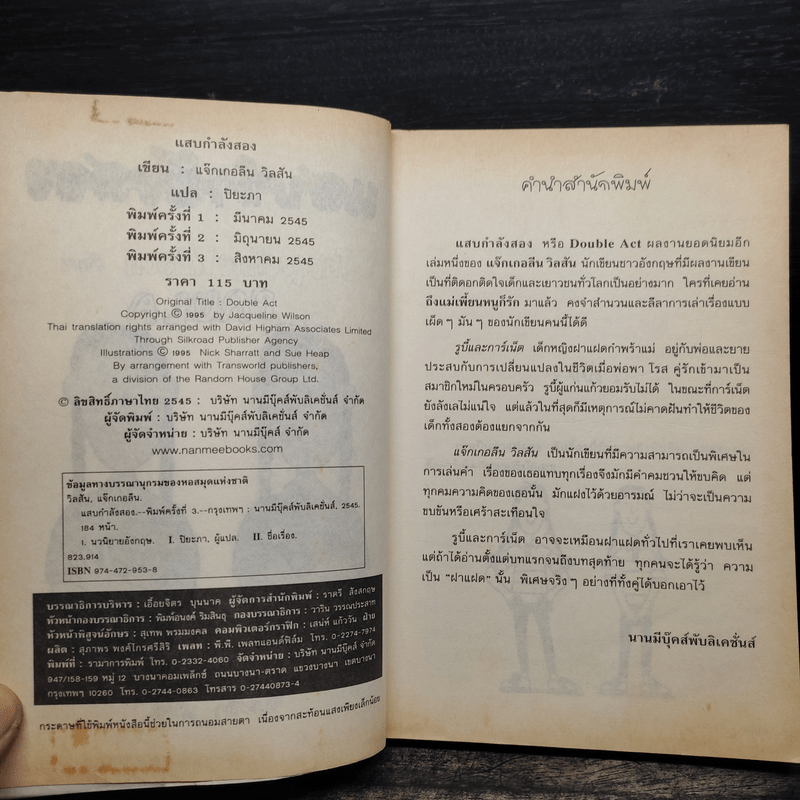 แสบกำลังสอง
เขียน : แจ๊กเกอลีน วิลสัน
แปล : ปิยะภา
พิมพ์ครั้งที่ 1 : มีนาคม 2545
พิมพ์ครั้งที่ 2 : มิถุนายน 2545
พิมพ์ครั้งที่ 3 : สิงหาคม 2545
ราคา 115 บาท
Original Title : Double Act
Copyright © 1995 by Jacqueline Wilson
Thai translation rights arranged with David Higham Associates Limited
Through Silkroad Publisher Agency
Illustrations © 1995 Nick Sharratt and Sue Heap
By arrangement with Transworld publishers,
a division of the Random House Group Ltd.
© ลิขสิทธิ์ภาษาไทย 2545 : บริษัท นานมีบุ๊คส์พับลิเคชั่นส์ จำกัด
ผู้จัดพิมพ์ : บริษัท นานมีบุ๊คส์พับลิเคชั่นส์ จำกัด
ผู้จัดจำหน่าย : บริษัท นานมีบุ๊คส์ จำกัด
www.nanmeebooks.com
ข้อมูลทางบรรณานุกรมของหอสมุดแห่งชาติ
วิลสัน, แจ๊กเกอลีน.
แสบกำลังสอง.--พิมพ์ครั้งที่ 3.--กรุงเทพฯ : นานมีบุ๊คส์พับลิเคชั่นส์, 2545.
184 หน้า.
1. นวนิยายอังกฤษ. I. ปิยะภา, ผู้แปล. II. ชื่อเรื่อง.
823.914
ISBN 974-472-953-8
บรรณาธิการบริหาร : เอื้อยจิตร บุนนาค ผู้จัดการสำนักพิมพ์ : ราตรี สังสกฤษ
หัวหน้ากองบรรณาธิการ : พิมพ์อนงค์ ริมสินธุ กองบรรณาธิการ : วาริน วรรณประสาท
หัวหน้าพิสูจน์อักษร : สุเทพ พรมมงคล คอมพิวเตอร์กราฟิก : เสน่ห์ แก้ววัน ฝ่าย
ผลิต : สุภาพร พงศ์ไกรศรีสิริ เพลท : พี.พี. เพลทแอนด์ฟิล์ม โทร. 0-2274-7974
พิมพ์ที่ : รามาการพิมพ์ โทร. 0-2332-4060 จัดจำหน่าย : บริษัท นานมีบุ๊คส์ จำกัด
947/158-159 หมู่ 12 บางนาคอมเพล็กซ์ ถนนบางนา-ตราด แขวงบางนา เขตบางนา
กรุงเทพฯ 10260 โทร. 0-2744-0863 โทรสาร 0-27440873-4
กระดาษที่ใช้พิมพ์หนังสือนี้ช่วยในการถนอมสายตา เนื่องจากสะท้อนแสงเพียงเล็กน้อย
คำนำสำนักพิมพ์
แสบกำลังสอง หรือ Double Act ผลงานยอดนิยมอีก
เล่มหนึ่งของ แจ๊กเกอลีน วิลสัน นักเขียนชาวอังกฤษที่มีผลงานเขียน
เป็นที่ติดอกติดใจเด็กและเยาวชนทั่วโลกเป็นอย่างมาก ใครที่เคยอ่าน
ถึงแม่เพี้ยนหนูก็รัก มาแล้ว คงจำสำนวนและลีลาการเล่าเรื่องแบบ
เผ็ด ๆ มัน ๆ ของนักเขียนคนนี้ได้ดี
รูบี้และการ์เน็ต เด็กหญิงฝาแฝดกำพร้าแม่ อยู่กับพ่อและยาย
ประสบกับการเปลี่ยนแปลงในชีวิตเมื่อพ่อพา โรส คู่รักเข้ามาเป็น
สมาชิกใหม่ในครอบครัว รูบี้ผู้แก่นแก้วยอมรับไม่ได้ ในขณะที่การ์เน็ต
ยังลังเลไม่แน่ใจ แต่แล้วในที่สุดก็มีเหตุการณ์ไม่คาดฝันทำให้ชีวิตของ
เด็กทั้งสองต้องแยกจากกัน
แจ๊กเกอลีน วิลสัน เป็นนักเขียนที่มีความสามารถเป็นพิเศษใน
การเล่นคำ เรื่องของเธอแทบทุกเรื่องจึงมักมีคำคมชวนให้ขบคิด แต่
ทุกคมความคิดของเธอนั้น มักแฝงไว้ด้วยอารมณ์ ไม่ว่าจะเป็นความ
ขบขันหรือเศร้าสะเทือนใจ
รูบี้และการ์เน็ต อาจจะเหมือนฝาแฝดทั่วไปที่เราเคยพบเห็น
แต่ถ้าได้อ่านตั้งแต่บทแรกจนถึงบทสุดท้าย ทุกคนจะได้รู้ว่า ความ
เป็น "ฝาแฝด" นั้น พิเศษจริง ๆ อย่างที่ทั้งคู่ได้บอกเอาไว้
นานมีบุ๊คส์พับลิเคชั่นส์